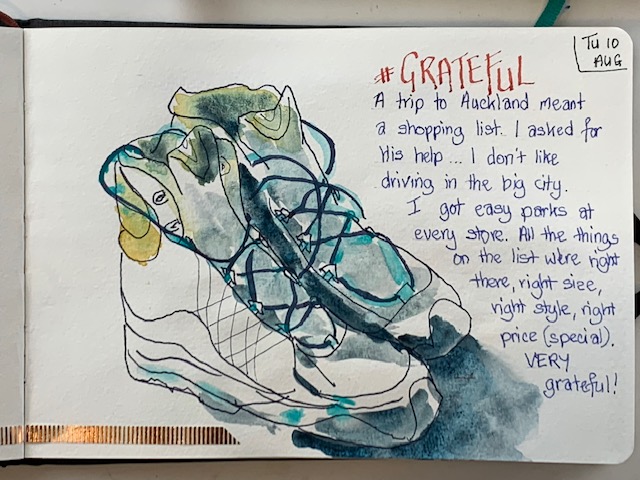 #GRATEFUL
TU 10
AUG
A trip to Auckland meant
a shopping list. I asked for
His help... I don't like
driving in the big city.
I got easy parks at
every store. All the things
on the list were right
there, right size,
right style, right
price (special).
VERY
grateful!